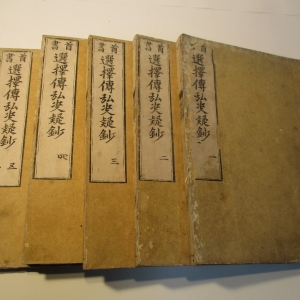 首書 選擇傳弘决疑鈔 一
首書 選擇傳弘决疑鈔 二
首書 選擇傳弘决疑鈔 三
首書 選擇傳弘决疑鈔 四
首書 選擇傳弘决疑鈔 五